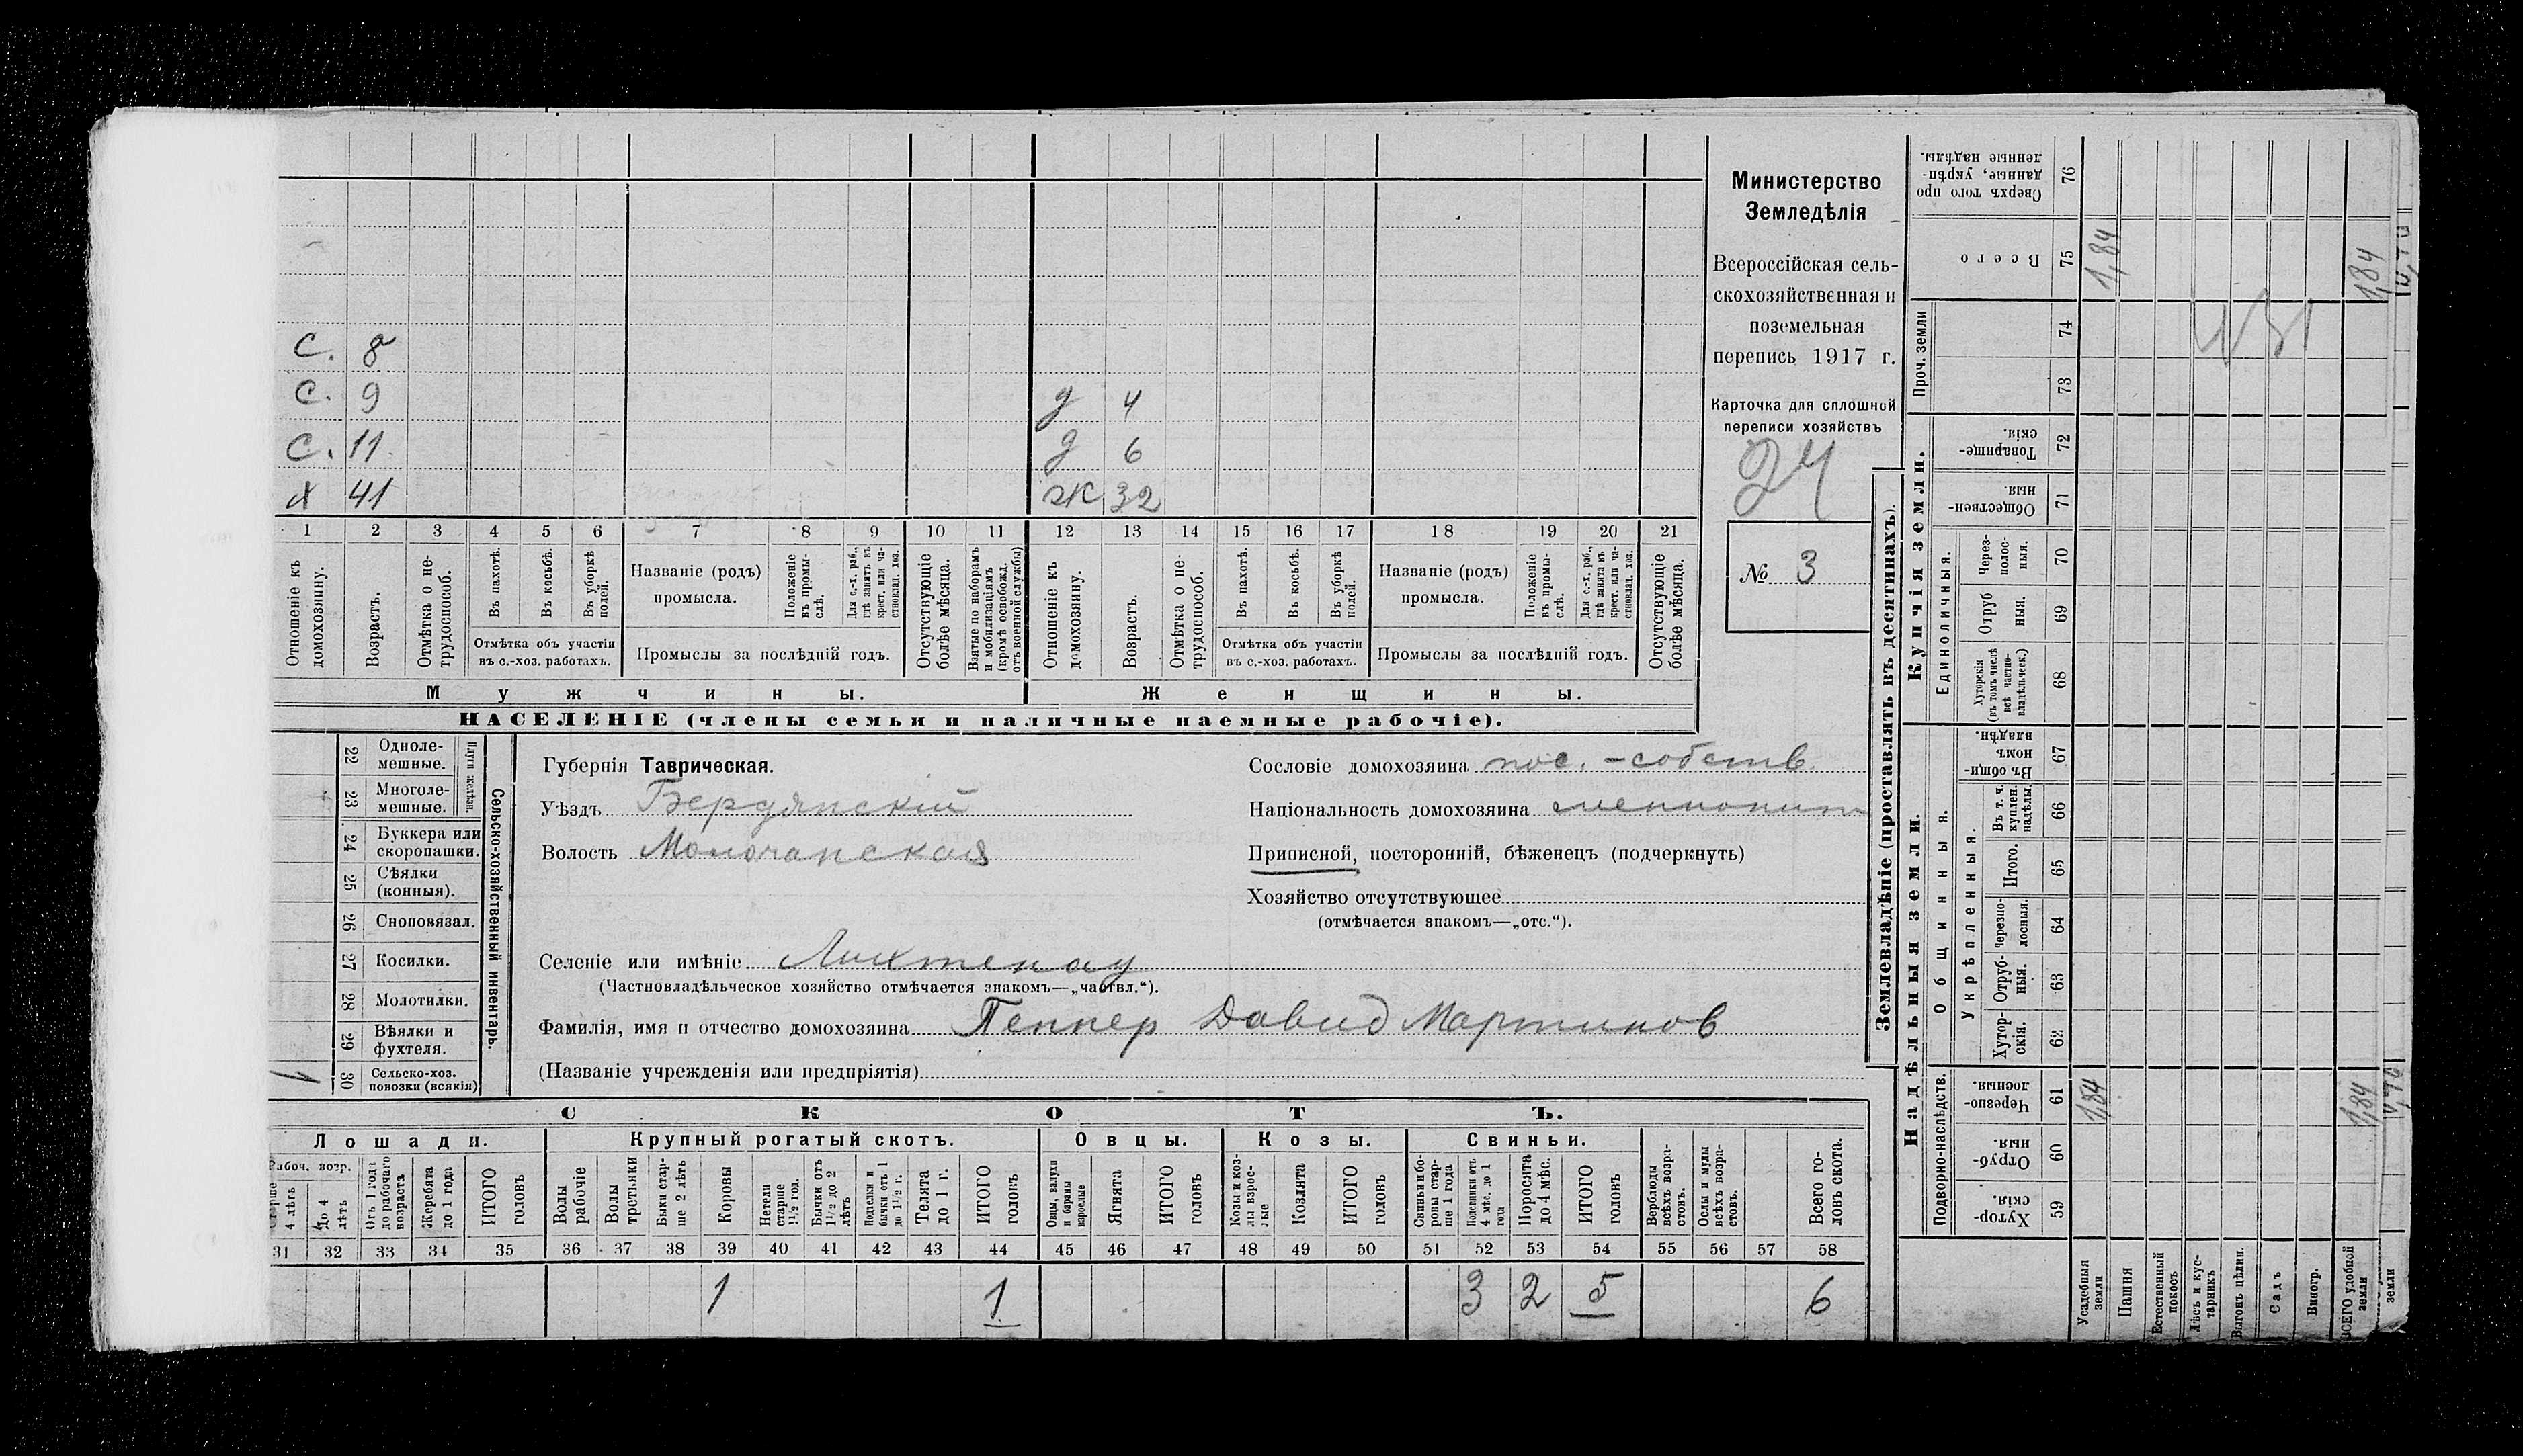 Министерство
Земледѣлія
Всероссійская сель-
скохозяйственная и
поземельная
перепись 1917 г.
Карточка для сплошной
переписи хозяйствъ
24
№ 3
С. 8
С. 9
д 4
С. 11
д 6
х 41
ж 32
1 2 3 4 5 6 7 8 9 10 11 12 13 14 15 16 17 18 19 20 21
Отношеніе къ домохозяину.
Возрастъ.
Отмѣтка о не-трудоспособ.
Въ пахотѣ.
Въ косьбѣ.
Въ уборкѣ полей.
Отмѣтка объ участіи
въ с.-хоз. работахъ.
Названіе (родъ)
промысла.
Положеніе въ промы-слѣ.
Для с.-х. раб., гдѣ занятъ въ крест. или ча-стновлад. хоз.
Промыслы за послѣдній годъ.
Отсутствующіе болѣе мѣсяца.
Взятые по наборамъ и мобилизаціямъ (кромѣ освобожд. отъ военной службы)
Отношеніе къ домохозяину.
Возрастъ.
Отмѣтка о не-трудоспособ.
Въ пахотѣ.
Въ косьбѣ.
Въ уборкѣ полей.
Отмѣтка объ участіи
въ с.-хоз. работахъ.
Названіе (родъ)
промысла.
Положеніе въ промы-слѣ.
Для с.-х. раб., гдѣ занята въ крест. или ча-стновлад. хоз.
Промыслы за послѣдній годъ.
Отсутствующіе болѣе мѣсяца.
Мужчины.
Женщины.
НАСЕЛЕНІЕ (члены семьи и наличные наемные рабочіе).
Сельско-хозяйственный инвентарь.
Плуги желѣзн.
22 Одноле-мешные.
23 Многоле-мешные.
24 Буккера или скоропашки.
25 Сѣялки (конныя).
26 Сноповязал.
27 Косилки.
28 Молотилки.
29 Вѣялки и фухтеля.
30 Сельско-хоз. повозки (всякія)
Губернія Таврическая.
Уѣздъ Бердянскій
Волость Молочанская
Сословіе домохозяина пос.-собств.
Національность домохозяина меннонит
Приписной, посторонній, бѣженецъ (подчеркнуть)
Хозяйство отсутствующее
(отмѣчается знакомъ—„отс.“).
Селеніе или имѣніе Лихтенау
(Частновладѣльческое хозяйство отмѣчается знакомъ—„частвл.“).
Фамилія, имя и отчество домохозяина Пеннер Давид Мартинов
(Названіе учрежденія или предпріятія)
СКОТЪ.
Лошади.
Крупный рогатый скотъ.
Овцы.
Козы.
Свиньи.
Рабоч. возр.
Старше 4 лѣтъ
До 4 лѣтъ
Отъ 1 года до рабочаго возраста
Жеребята до 1 года
ИТОГО головъ
Волы рабочіе
Волы третьяки
Быки стар-ше 2 лѣтъ
Коровы
Нетели старше 1½ год.
Бычки отъ 1½ до 2 лѣтъ
Подтелки и бычки отъ 1 до 1½ г.
Телята до 1 г.
ИТОГО головъ
Овцы, валухи и бараны взрослые
Ягнята
ИТОГО головъ
Козы и коз-лы взрос-лые
Козлята
ИТОГО головъ
Свиньи и бо-ровы стар-ше 1 года
Подсвинки отъ 4 мѣс. до 1 года
Поросята до 4 мѣс.
ИТОГО головъ
Верблюды всѣхъ возра-стовъ.
Ослы и мулы всѣхъ возра-стовъ.
Всего го-ловъ скота.
31 32 33 34 35 36 37 38 39 40 41 42 43 44 45 46 47 48 49 50 51 52 53 54 55 56 57 58
1 1 3 2 5 6
Землевладѣніе (проставлять въ десятинахъ).
Надѣльныя земли.
Купчія земли.
Проч. земли
Подворно-наслѣдств.
Общинныя.
Укрѣпленныя.
Единоличныя.
Хутор-скія. 59
Отруб-ныя. 60
Черезпо-лосныя. 61
Хутор-скія. 62
Отруб-ныя. 63
Черезпо-лосныя. 64
Итого. 65
Въ т. ч. куплен. надѣлы. 66
Въ общи-номъ владѣн. 67
Хуторскія (въ томъ числѣ всѣ частно-владѣльческ.) 68
Отруб ныя. 69
Через-полос-ныя. 70
Обществен-ныя. 71
Товарище-скія. 72
73
74
Всего 75
Сверхъ того про данные, укрѣп-ленные надѣлы. 76
Усадебныя земли 1,84 1,84
Пашня
Естественный покосъ
Лѣсъ и кус-тарникъ
Выгонъ цѣлин.
Садъ
Виногр.
ВСЕГО удобной земли 1,84 1,84
земли